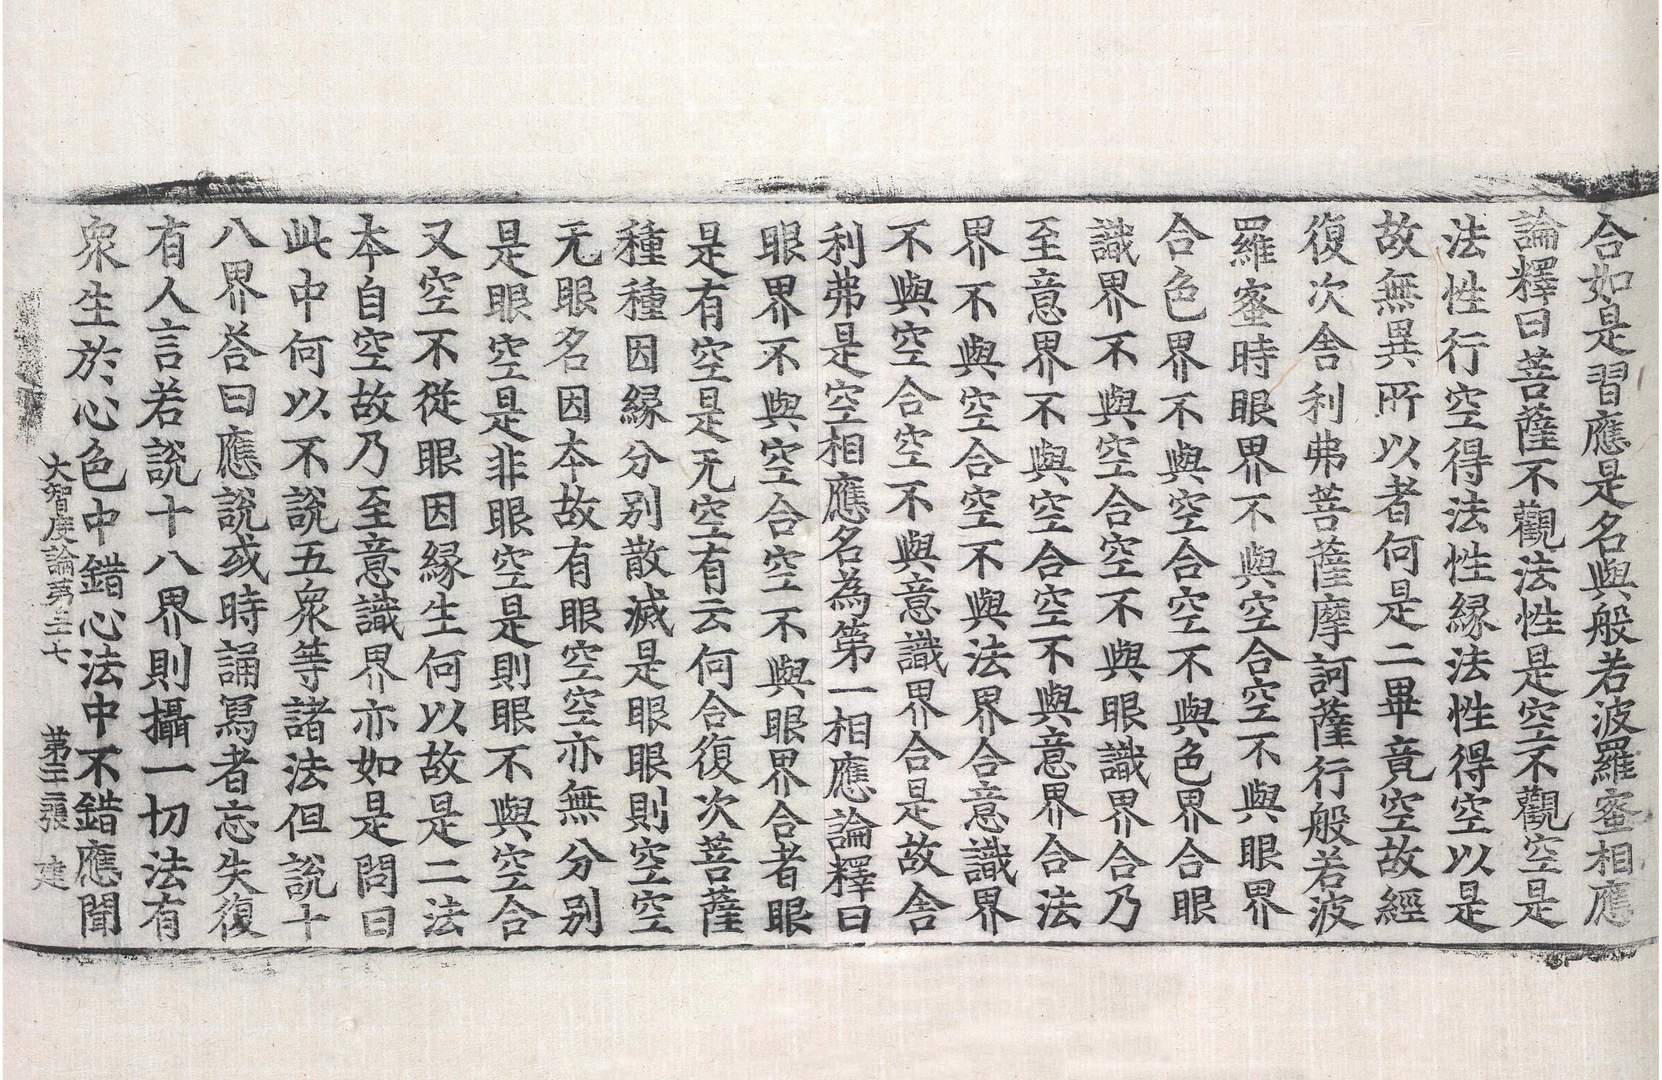 合如是習應是名與般若波羅蜜相應
論釋曰菩薩不觀法性是空不觀空是
法性行空得法性緣法性得空以是
故無異所以者何是二畢竟空故經
復次舍利弗菩薩摩訶薩行般若波
羅蜜時眼界不與空合空不與眼界
合色界不與空合空不與色界合眼
識界不與空合空不與眼識界合乃
至意界不與空合空不與意界合法
界不與空合空不與法界合意識界
不與空合空不與意識界合是故舍
利弗是空相應名為第一相應論釋曰
眼界不與空合空不與眼界合者眼
是有空是无空有云何合復次菩薩
種種因緣分別散滅是眼眼則空空
无眼名因本故有眼空空亦無分別
是眼空是非眼空是則眼不與空合
又空不從眼因緣生何以故是二法
本自空故乃至意識界亦如是問曰
此中何以不說五衆等諸法但說十
八界荅曰應說或時誦寫者忘失復
有人言若說十八界則攝一切法有
衆生於心色中錯心法中不錯應聞
大智度論第三十七 第三張 建